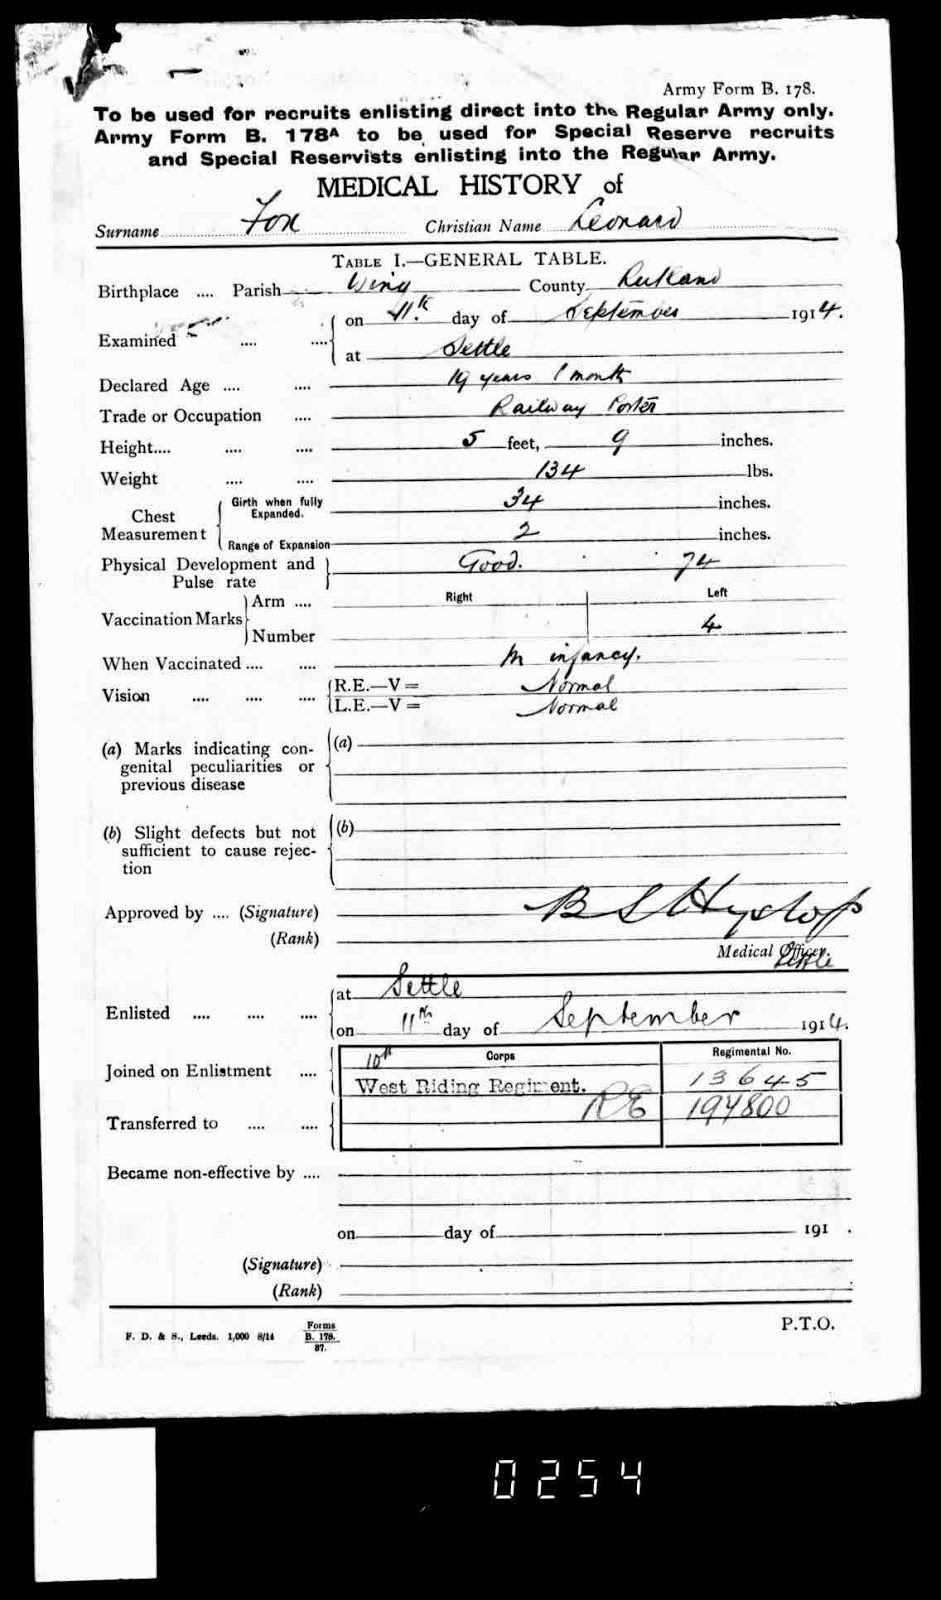 Army Form B. 178.
To be used for recruits enlisting direct into the Regular Army only.
Army Form B. 178A to be used for Special Reserve recruits
and Special Reservists enlisting into the Regular Army.
MEDICAL HISTORY of
Surname Fox Christian Name Leonard
TABLE I.—GENERAL TABLE.
Birthplace .... Parish Wing County Rutland
Examined .... .... on 11th day of September 1914.
at Settle
Declared Age .... .... 19 years 1 month
Trade or Occupation .... Railway Porter
Height.... .... .... 5 feet, 9 inches.
Weight .... .... 134 lbs.
Chest Measurement Girth when fully Expanded. 34 inches.
Range of Expansion 2 inches.
Physical Development and Pulse rate Good. 74
Vaccination Marks Arm .... Right Left
Number 4
When Vaccinated .... .... In infancy.
Vision .... .... .... R.E.—V = Normal
L.E.—V = Normal
(a) Marks indicating con- (a)
genital peculiarities or
previous disease
(b) Slight defects but not (b)
sufficient to cause rejec-
tion
Approved by .... (Signature) B S Hyslop
(Rank)
Medical Officer.
Settle
Enlisted .... .... .... at Settle
on 11th day of September 1914.
10th Corps Regimental No.
Joined on Enlistment .... West Riding Regiment. 13645
RE 194800
Transferred to .... ....
Became non-effective by ....
on day of 191 .
(Signature)
(Rank)
P.T.O.
F. D. & S., Leeds. 1,000 8/14 Forms
B. 178.
37.
0254